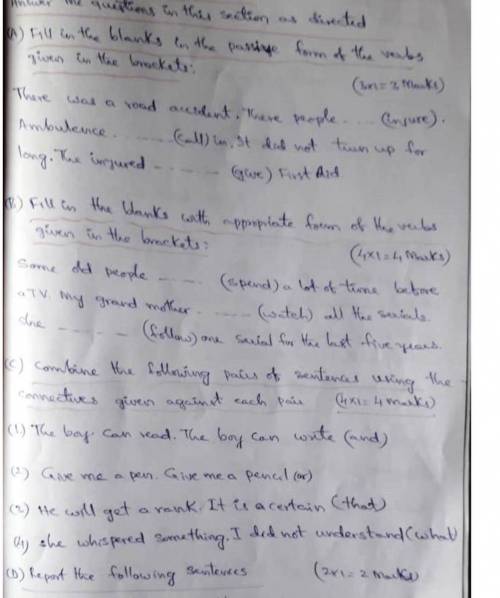 Answer the questions in this section as directed
(A) Fill in the blanks in the passive form of the verbs
given in the brackets:
(3x1=3 Marks)
There was a road accident. There people .... (injure).
Ambulence. ...... (call) in. It did not turn up for
long. The injured ...... (give) First Aid
(B) Fill in the blanks with appropriate form of the verbs
given in the brackets:
(4x1=4 Marks)
Some old people ..... (spend) a lot of time before
a TV. My grand mother. ..... (watch) all the serials.
She ...... (follow) one serial for the last five years.
(C) Combine the following pairs of sentences using the
connectives given against each pair (4x1=4 marks)
(1.) The boy can read. The boy can write (and)
(2) Give me a pen. Give me a pencil (or)
(3) He will get a rank. It is a certain (that)
(4) she whispered something. I did not understand (what)
(D) Report the following sentences (2x1=2 Marks)